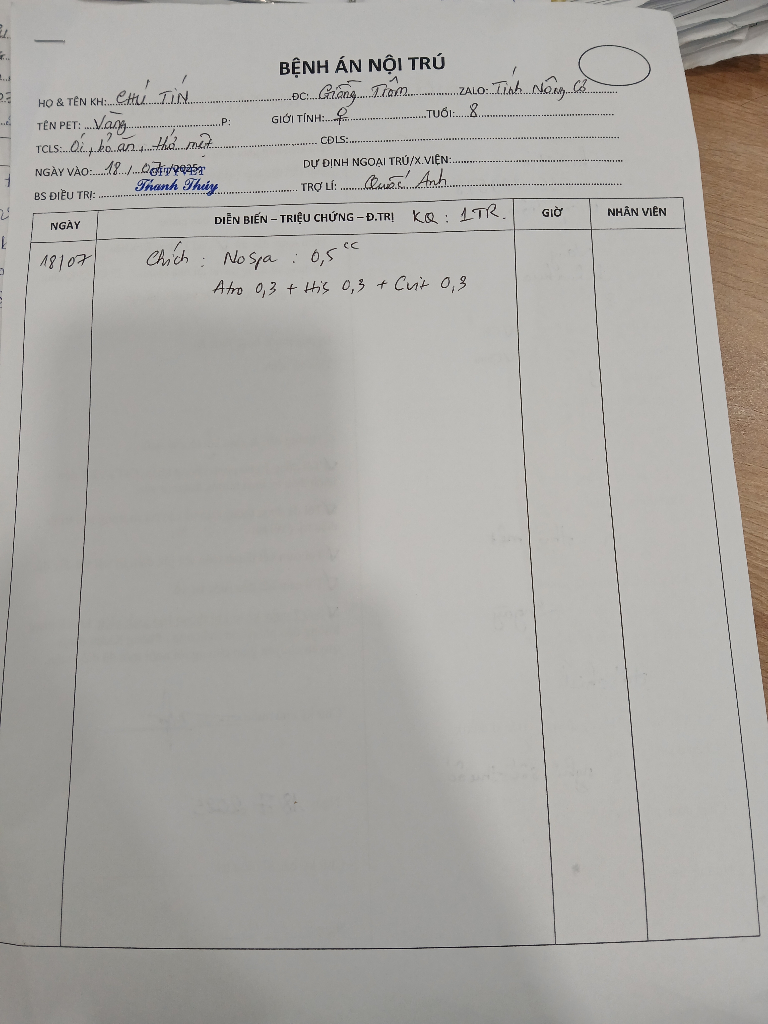 BỆNH ÁN NỘI TRÚ
HỌ & TÊN KH: CHÚ TÍN ĐC: Giồng Trôm ZALO: Tính Nông Cơ
TÊN PET: Vàng P: GIỚI TÍNH: ♀ TUỔI: 8
TCLS: Ói, bỏ ăn, thở mệt CĐLS:
NGÀY VÀO: 18/07/2025 DỰ ĐỊNH NGOẠI TRÚ/X.VIỆN:
BS ĐIỀU TRỊ: Thanh Thúy TRỢ LÍ: Quốc Anh
NGÀY DIỄN BIẾN – TRIỆU CHỨNG – Đ.TRỊ KQ: 1TR. GIỜ NHÂN VIÊN
18/07 Chích: Nospa: 0,5cc
Atro 0,3 + His 0,3 + Cvit 0,3